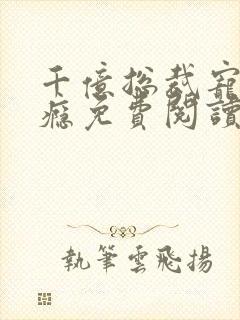 千億總裁寵
癮免費閱讀
執筆雲飛揚